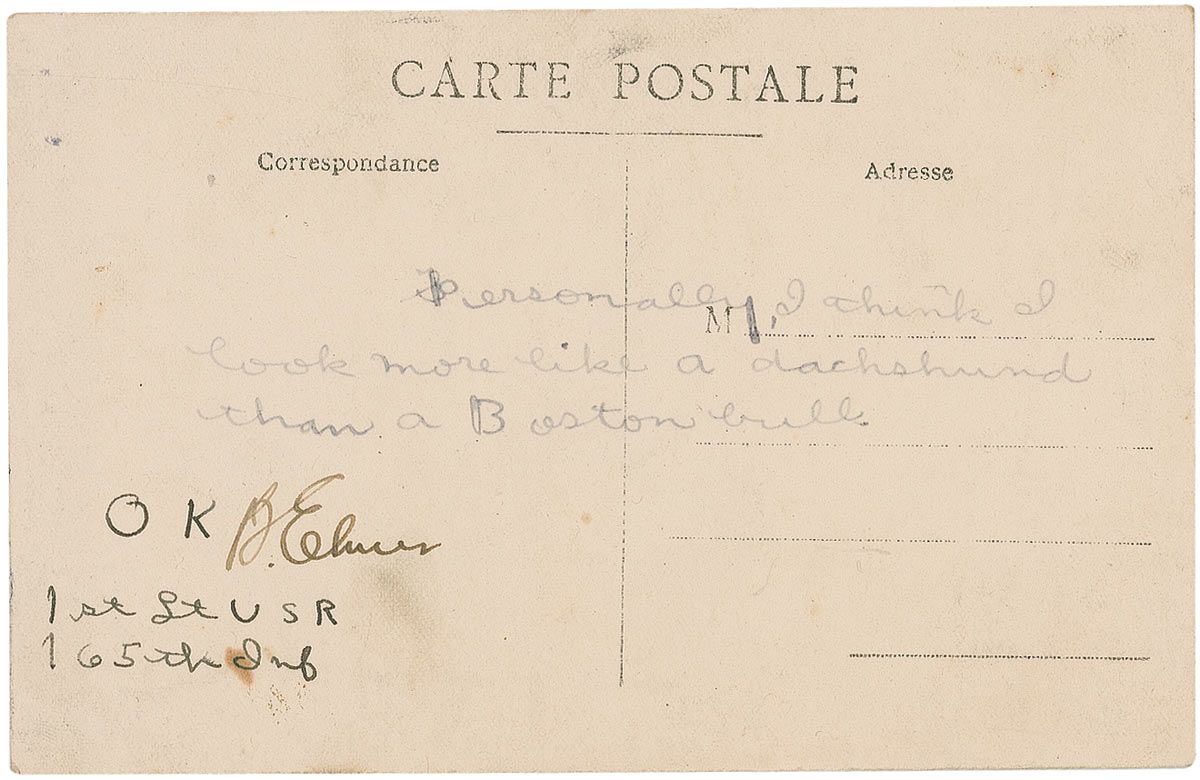 CARTE POSTALE
Correspondance
Adresse
M
Personally, I think I
look more like a dachshund
than a Boston bull
O K B. Elmer
1st Lt U S R
165th Inf